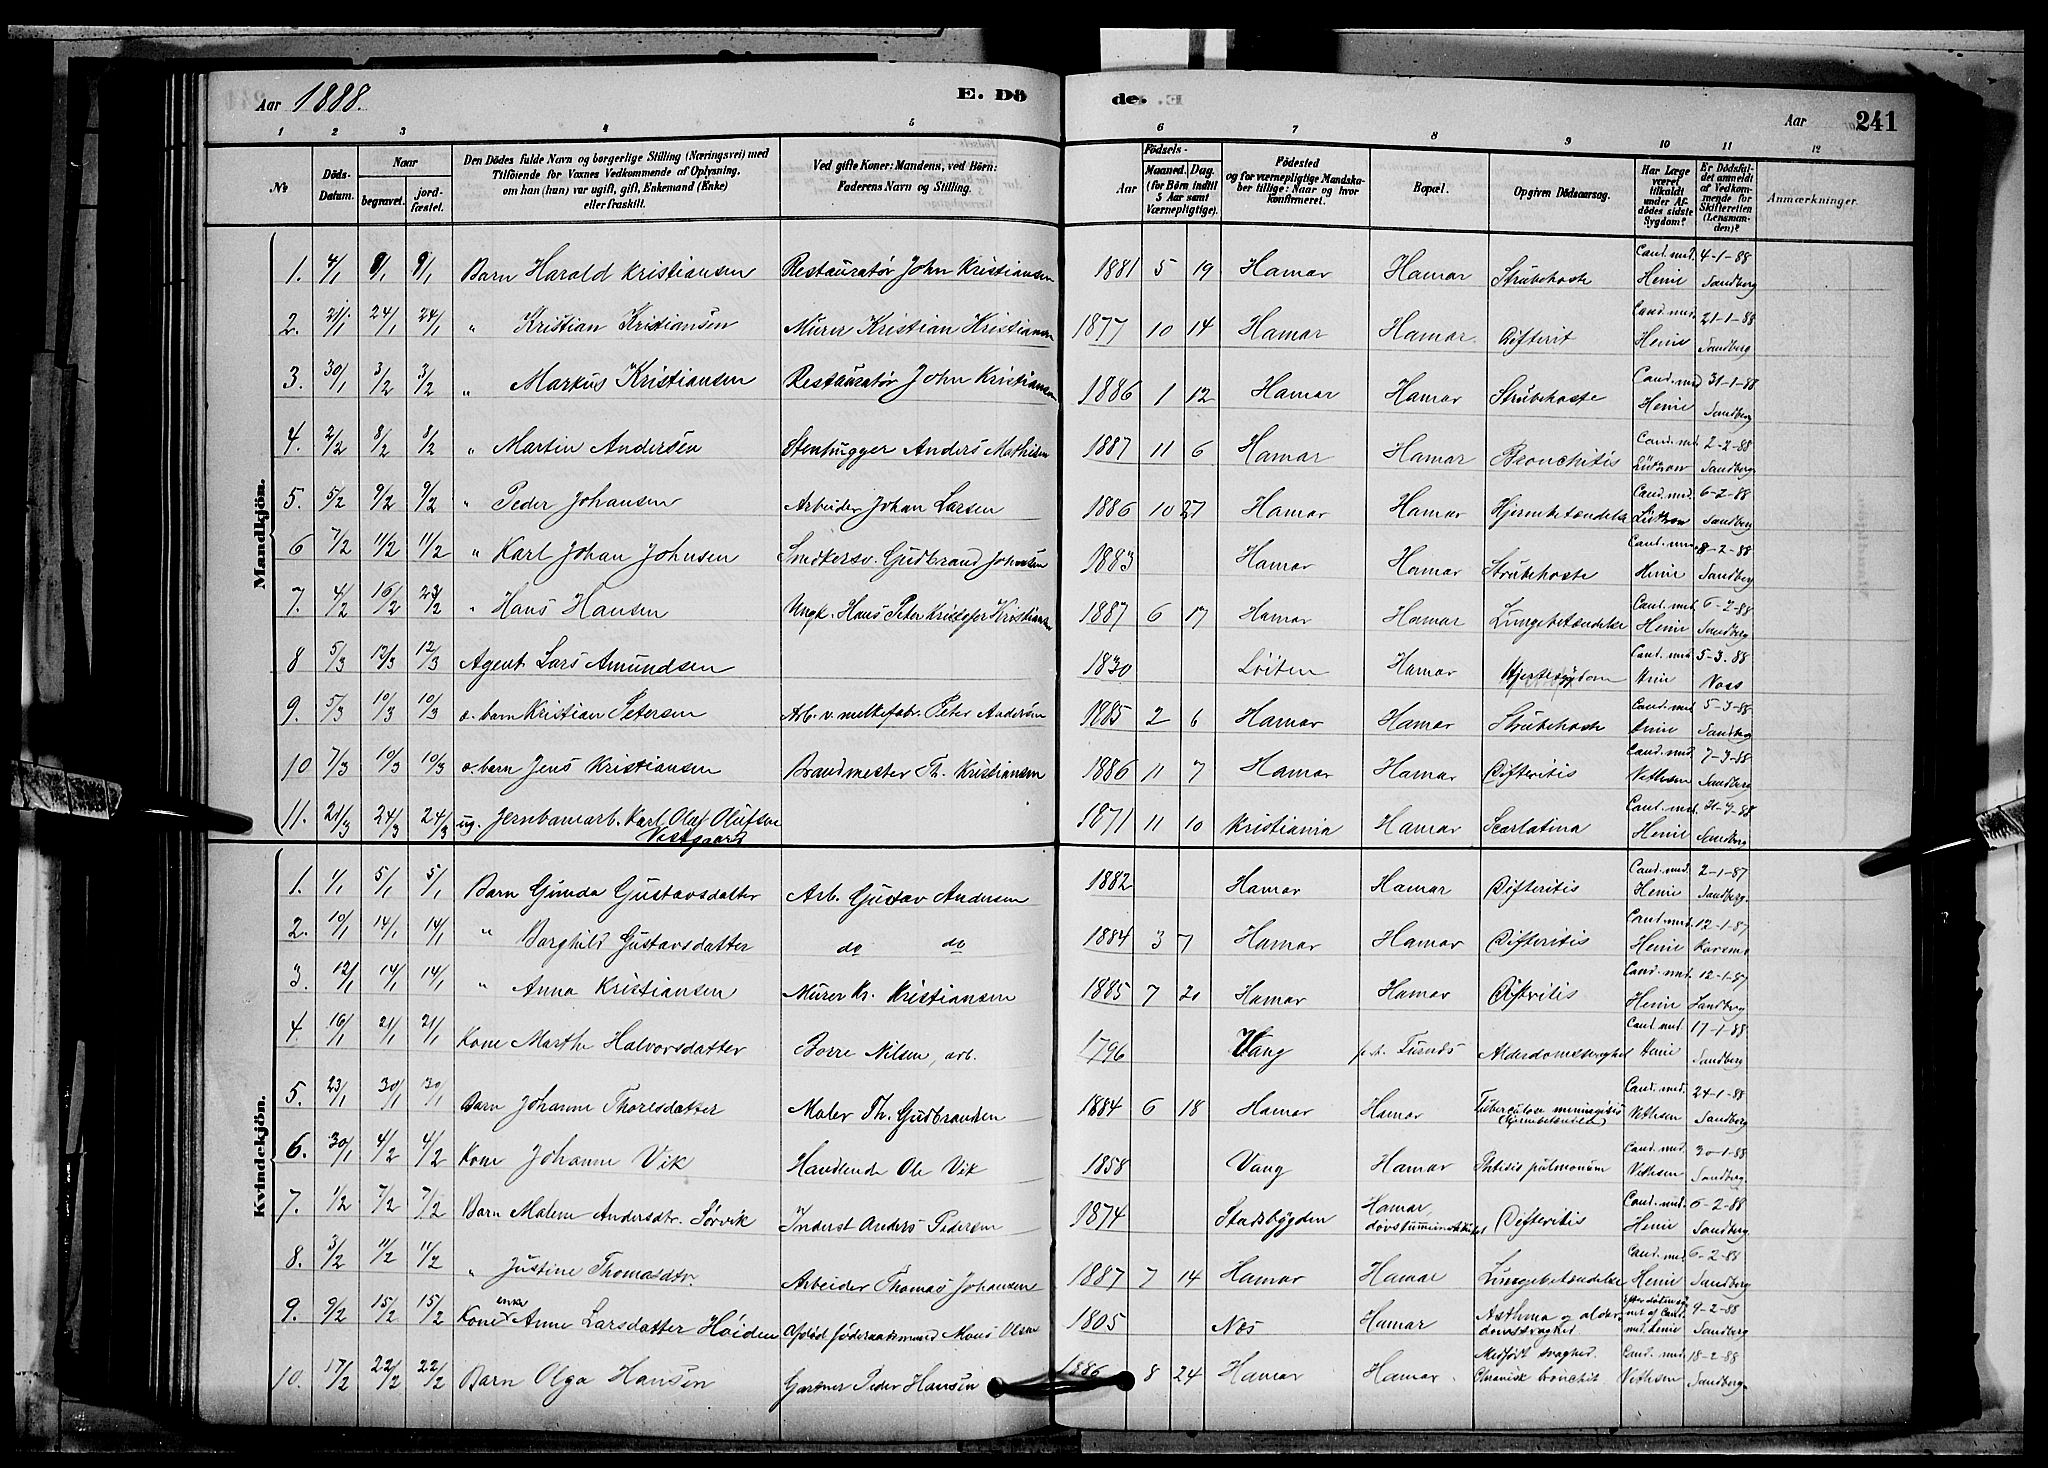 Aar 1888. E. Dö de. Aar 241
1 2 3 4 5 6 7 8 9 10 11 12
No Döds-Datum. Naar begravet. jord-fæstet. Den Dödes fulde Navn og borgerlige Stilling (Næringsvei) med Tilföiende for Voxnes Vedkommende af Oplysning, om han (hun) var ugift, gift, Enkemand (Enke) eller fraskilt. Ved gifte Koner: Mandens, ved Börn: Faderens Navn og Stilling. Födsels- Aar Maaned. Dag. (for Börn indtil 5 Aar samt Værnepligtige). Födested og for værnepligtige Mandska-ber tillige: Naar og hvor konfirmeret. Bopæl. Opgiven Dödsaarsag. Har Læge været tilkaldt under Af-dödes sidste Sygdom? Er Dödsfal-det anmeldt af Vedkom-mende for Skifteretten (Lensman-den)? Anmærkninger.
Mandkjön.
1. 4/1 9/1 9/1 Barn Harald Kristiansen Restauratør John Kristiansen 1881 5 19 Hamar Hamar Strubehoste Cand. med. Heine 4-1-88 Sandberg
2. 21/1 24/1 24/1 " Kristian Kristiansen Murer Kristian Kristiansen 1877 10 14 Hamar Hamar Difterit Cand. med. Heine 21-1-88 Sandberg
3. 30/1 3/2 3/2 " Markus Kristiansen Restauratør John Kristiansen 1886 1 12 Hamar Hamar Strubehoste Cand. med Heine 31-1-88 Sandberg
4. 2/2 8/2 8/2 " Martin Andersen Stenhugger Anders Mathisen 1887 11 6 Hamar Hamar Bronchitis Cand. med. Lützow 2-2-88 Sandberg
5. 5/2 9/2 9/2 " Peder Johansen Arbeider Johan Larsen 1886 10 27 Hamar Hamar Hjernebetændelse Cand. med. Lützow 6-2-88 Sandberg
6 7/2 11/2 11/2 " Karl Johan Johnsen Snedkersv. Gudbrand Johnsen 1883 Hamar Hamar Strubehoste Cand. med. Heine 8-2-88 Sandberg
7. 4/2 16/2 " Hans Hansen Ungk. Hans Peter Kristofer Kristiansen 1887 6 17 Hamar Hamar Lungebetændelse Cand. med. Heine 6-2-88 Sandberg
8 5/3 12/3 12/3 Agent Lars Amundsen 1830 Löiten Hamar Hjertesygdom Cand. med Heine 5-3-88 Næss
9. 5/3 10/3 10/3 e. barn Kristian Petersen Arb. v. melkefabr. Peter Andersen 1885 2 6 Hamar Hamar Strubehoste Cand. med Heine 5-3-88 Sandberg
10 7/3 10/3 10/3 e. barn Jens Kristiansen Brandmester Th. Kristiansen 1886 11 7 Hamar Hamar Difteritis Cand. med Vethesen 7-3-88 Sandberg
11. 21/3 24/3 24/3 ug. Jernbanearb. Karl Olaf Olufsen Vestgaard 1871 11 10 Kristiania Hamar Scarlatina Cand. med. Heine Sandberg
Kvindekjön.
1. 1/1 5/1 5/1 Barn Gunda Gustavsdatter Arb. Gustav Andersen 1882 Hamar Hamar Difteritis Cand. med Heine 2-1-87 Sandberg.
2. 10/1 14/1 14/1 " Borghild Gustavsdatter do do 1884 3 7 Hamar Hamar Difteritis Cand. med. Heine 12-1-87 Korsmo
3. 12/1 14/1 14/1 " Anna Kristiansen Murer Kr. Kristiansen 1885 7 20 Hamar Hamar Difteritis Cand. med. Heine 12-1-87 Sandberg
4. 16/1 21/1 21/1 Kone Marthe Halvorsdatter Borre Nilsen, arb. 1796 Vang Furnes Alderdomssvaghed Cand. med Heine 17-1-88 Sandberg
5. 23/1 30/1 30/1 Barn Johanne Thorlsdatter Maler Th. Gudbrandsen 1884 6 18 Hamar Hamar Tuberculose meningitis (Hjernebetændelse) Cand. med. Vethesen 24-1-88 Sandberg
6. 30/1 4/2 4/2 Kone Johanne Vik Handlende Ole Vik 1858 Vang Hamar Phtisis pulmonum Cand. med. Vethesen 30-1-88 Sandberg.
7. 1/2 7/2 7/2 Barn Malene Andersdtr. Sørvik Inderst Anders Pedersen 1874 Stadsbygden Hamar, Difteritis Cand. med. Heine 6-2-88 Sandberg.
8. 3/2 11/2 11/2 " Justine Thomasdtr. Arbeider Thomas Johansen 1887 7 14 Hamar Hamar Lungebetændelse Cand. med. Heine 6-2-88 Sandberg
9. 9/2 15/2 15/2 Kone enke Anne Larsdatter Høiden Afdød föderaadsmand Mons Olsen 1805 Næs Hamar Asthma og alder-domssvaghed 9-2-88 Sandberg
10. 17/2 22/2 22/2 Barn Olga Hansen Gartner Peder Hansen 1886 8 24 Hamar Hamar Medfødt svaghed. Chronisk bronchit Cand. med. Vethesen 18-2-88 Sandberg